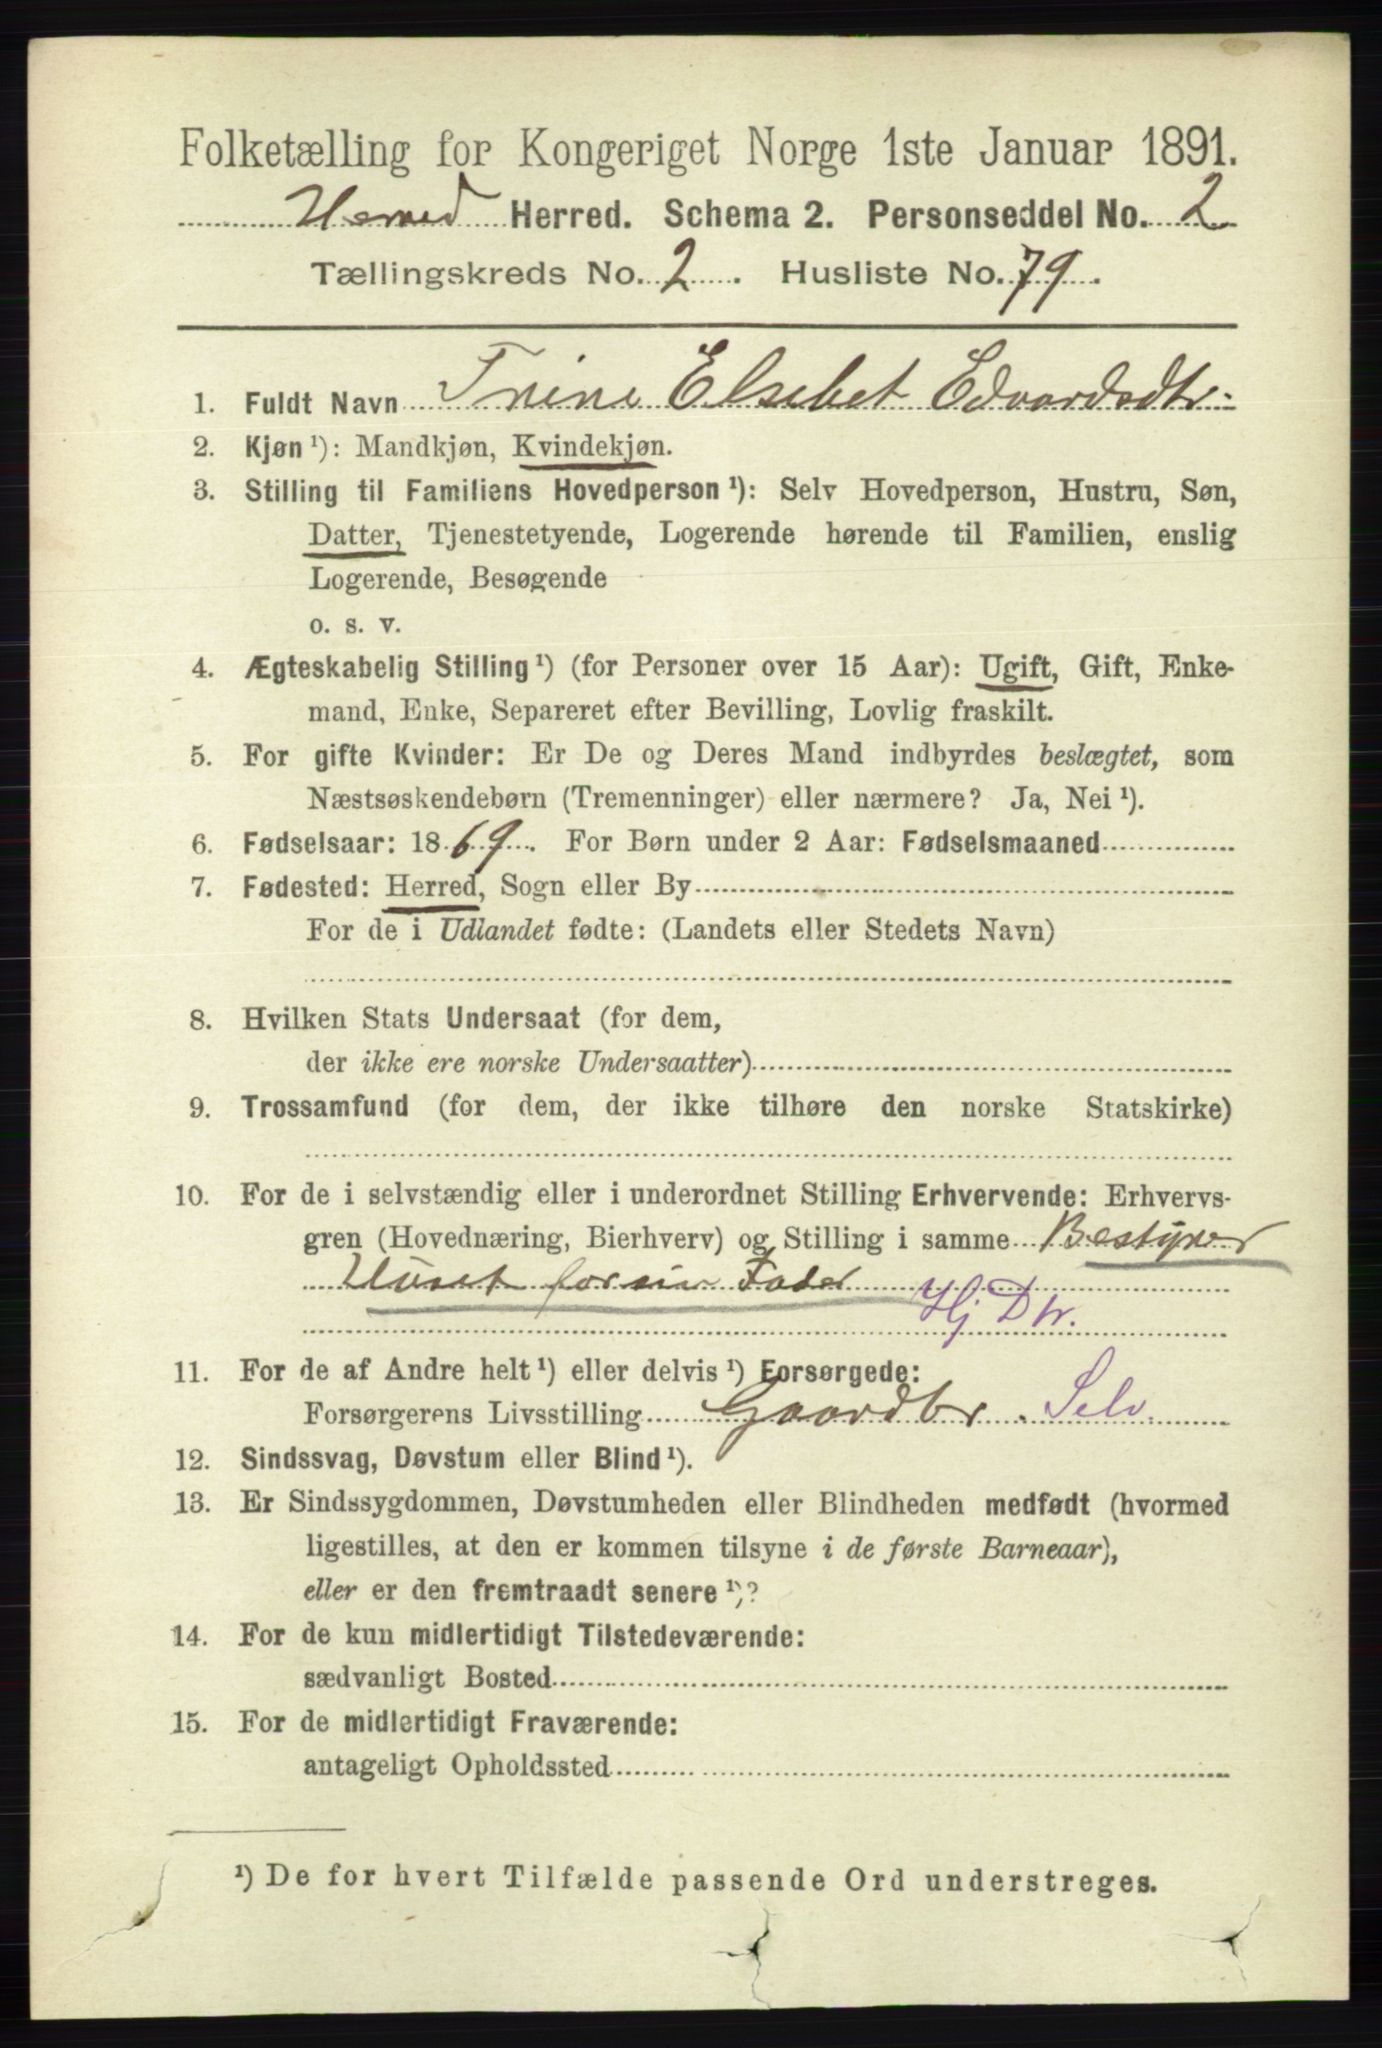 Folketælling for Kongeriget Norge 1ste Januar 1891.
Hemne Herred. Schema 2. Personseddel No. 2
Tællingskreds No. 2. Husliste No. 79.
1. Fuldt Navn Trine Elsebet Edvardsdtr.
2. Kjøn¹): Mandkjøn, Kvindekjøn.
3. Stilling til Familiens Hovedperson¹): Selv Hovedperson, Hustru, Søn,
Datter, Tjenestetyende, Logerende hørende til Familien, enslig
Logerende, Besøgende
o. s. v.
4. Ægteskabelig Stilling¹) (for Personer over 15 Aar): Ugift, Gift, Enke-
mand, Enke, Separeret efter Bevilling, Lovlig fraskilt.
5. For gifte Kvinder: Er De og Deres Mand indbyrdes beslægtet, som
Næstsøskendebørn (Tremenninger) eller nærmere? Ja, Nei¹).
6. Fødselsaar: 1869. For Børn under 2 Aar: Fødselsmaaned
7. Fødested: Herred, Sogn eller By
For de i Udlandet fødte: (Landets eller Stedets Navn)
8. Hvilken Stats Undersaat (for dem,
der ikke ere norske Undersaatter)
9. Trossamfund (for dem, der ikke tilhøre den norske Statskirke)
10. For de i selvstændig eller i underordnet Stilling Erhvervende: Erhvervs-
gren (Hovednæring, Bierhverv) og Stilling i samme Bestyrer
Huset for sin Fader
Hj Dtr.
11. For de af Andre helt¹) eller delvis¹) Forsørgede:
Forsørgerens Livsstilling Gaardbr. Selv.
12. Sindssvag, Døvstum eller Blind¹).
13. Er Sindssygdommen, Døvstumheden eller Blindheden medfødt (hvormed
ligestilles, at den er kommen tilsyne i de første Barneaar),
eller er den fremtraadt senere¹)?
14. For de kun midlertidigt Tilstedeværende:
sædvanligt Bosted
15. For de midlertidigt Fraværende:
antageligt Opholdssted
¹) De for hvert Tilfælde passende Ord understreges.